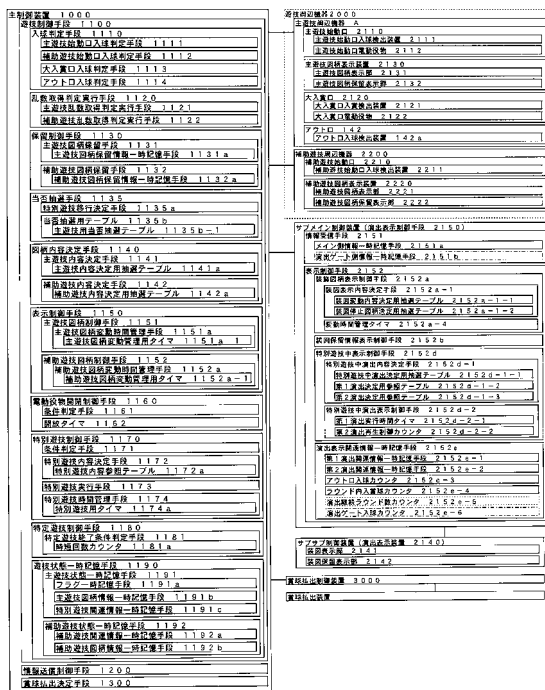 主制御装置 1000
遊技制御手段 1100
入球判定手段 1110
主遊技始動口入球判定手段 1111
補助遊技始動口入球判定手段 1112
大入賞口入球判定手段 1113
アウト口入球判定手段 1114
乱数取得判定実行手段 1120
主遊技乱数取得判定実行手段 1121
補助遊技乱数取得判定実行手段 1122
保留制御手段 1130
主遊技図柄保留手段 1131
主遊技図柄保留情報一時記憶手段 1131a
補助遊技図柄保留手段 1132
補助遊技図柄保留情報一時記憶手段 1132a
当否抽選手段 1135
特別遊技移行決定手段 1135a
当否抽選用テーブル 1135b
主遊技用当否抽選テーブル 1135b-1
図柄内容決定手段 1140
主遊技内容決定手段 1141
主遊技内容決定用抽選テーブル 1141a
補助遊技内容決定手段 1142
補助遊技内容決定用抽選テーブル 1142a
表示制御手段 1150
主遊技図柄制御手段 1151
主遊技図柄変動時間管理手段 1151a
主遊技図柄変動管理用タイマ 1151a-1
補助遊技図柄制御手段 1152
補助遊技図柄変動時間管理手段 1152a
補助遊技図柄変動管理用タイマ 1152a-1
電動役物開閉制御手段 1160
条件判定手段 1161
開放タイマ 1162
特別遊技制御手段 1170
条件判定手段 1171
特別遊技内容決定手段 1172
特別遊技内容参照テーブル 1172a
特別遊技実行手段 1173
特別遊技時間管理手段 1174
特別遊技用タイマ 1174a
特定遊技制御手段 1180
特定遊技終了条件判定手段 1181
時短回数カウンタ 1181a
遊技状態一時記憶手段 1190
主遊技状態一時記憶手段 1191
フラグ一時記憶手段 1191a
主遊技図柄情報一時記憶手段 1191b
特別遊技関連情報一時記憶手段 1191c
補助遊技状態一時記憶手段 1192
補助遊技関連情報一時記憶手段 1192a
補助遊技図柄情報一時記憶手段 1192b
情報送信制御手段 1200
賞球払出決定手段 1300
遊技周辺機器 2000
主遊技周辺機器 A
主遊技始動口 2110
主遊技始動口入球検出装置 2111
主遊技始動口電動役物 2112
主遊技図柄表示装置 2130
主遊技図柄表示部 2131
主遊技図柄保留表示部 2132
大入賞口 2120
大入賞口入賞検出装置 2121
大入賞口電動役物 2122
アウト口 142
アウト口入球検出装置 142a
補助遊技周辺機器 2200
補助遊技始動口 2210
補助遊技始動口入球検出装置 2211
補助遊技図柄表示装置 2220
補助遊技図柄表示部 2221
補助遊技図柄保留表示部 2222
サブメイン制御装置（演出表示制御手段 2150）
情報受信手段 2151
メイン側情報一時記憶手段 2151a
演出ゲート側情報一時記憶手段 2151b
表示制御手段 2152
装飾図柄表示制御手段 2152a
装図表示内容決定手段 2152a-1
装図変動内容決定用抽選テーブル 2152a-1-1
装図停止図柄決定用抽選テーブル 2152a-1-2
変動時間管理タイマ 2152a-4
装図保留情報表示制御手段 2152b
特別遊技中表示制御手段 2152d
特別遊技中演出内容決定手段 2152d-1
特別遊技中演出決定用抽選テーブル 2152d-1-1
第1演出決定用参照テーブル 2152d-1-2
第2演出決定用参照テーブル 2152d-1-3
特別遊技中演出表示制御手段 2152d-2
第1演出実行時間タイマ 2152d-2-1
第2演出再生制御カウンタ 2152d-2-2
演出表示関連情報一時記憶手段 2152e
第1演出関連情報一時記憶手段 2152e-1
第2演出関連情報一時記憶手段 2152e-2
アウト口入球カウンタ 2152e-3
ラウンド内入賞球カウンタ 2152e-4
演出継続ラウンド数カウンタ 2152e-5
演出ゲート入球カウンタ 2152e-6
サブサブ制御装置（演出表示装置 2140）
装図表示部 2141
装図保留表示部 2142
賞球払出制御装置 3000
賞球払出装置